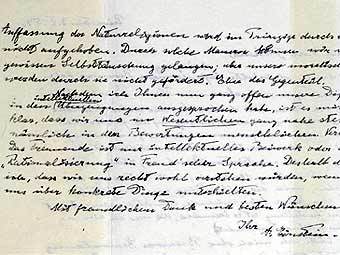 Auffassung des Naturreligiösen wird im Prinzip durch
nicht aufgehoben. Durch solche Manöver können wir
gewissen Selbsttäuschung gelangen; aber unsere moralischen
werden durch sie nicht gefördert. Eher das Gegenteil.
Nachdem wir Ihnen nun ganz offen unsere Differenzen
intellektuellen
in den Überzeugungen ausgesprochen habe, ist es mir
klar, dass wir uns im Wesentlichen ganz nahe stehen
nämlich in den Bewertungen menschlichen
Das Trennende ist nur intellektuelles Beiwerk oder
"Rationalisierung" in Freud'scher Sprache. Deshalb
ich, dass wir uns recht wohl verstehen würden, wenn
uns über konkrete Dinge unterhielten.
Mit freundlichem Dank und besten Wünschen
Ihr
A. Einstein.